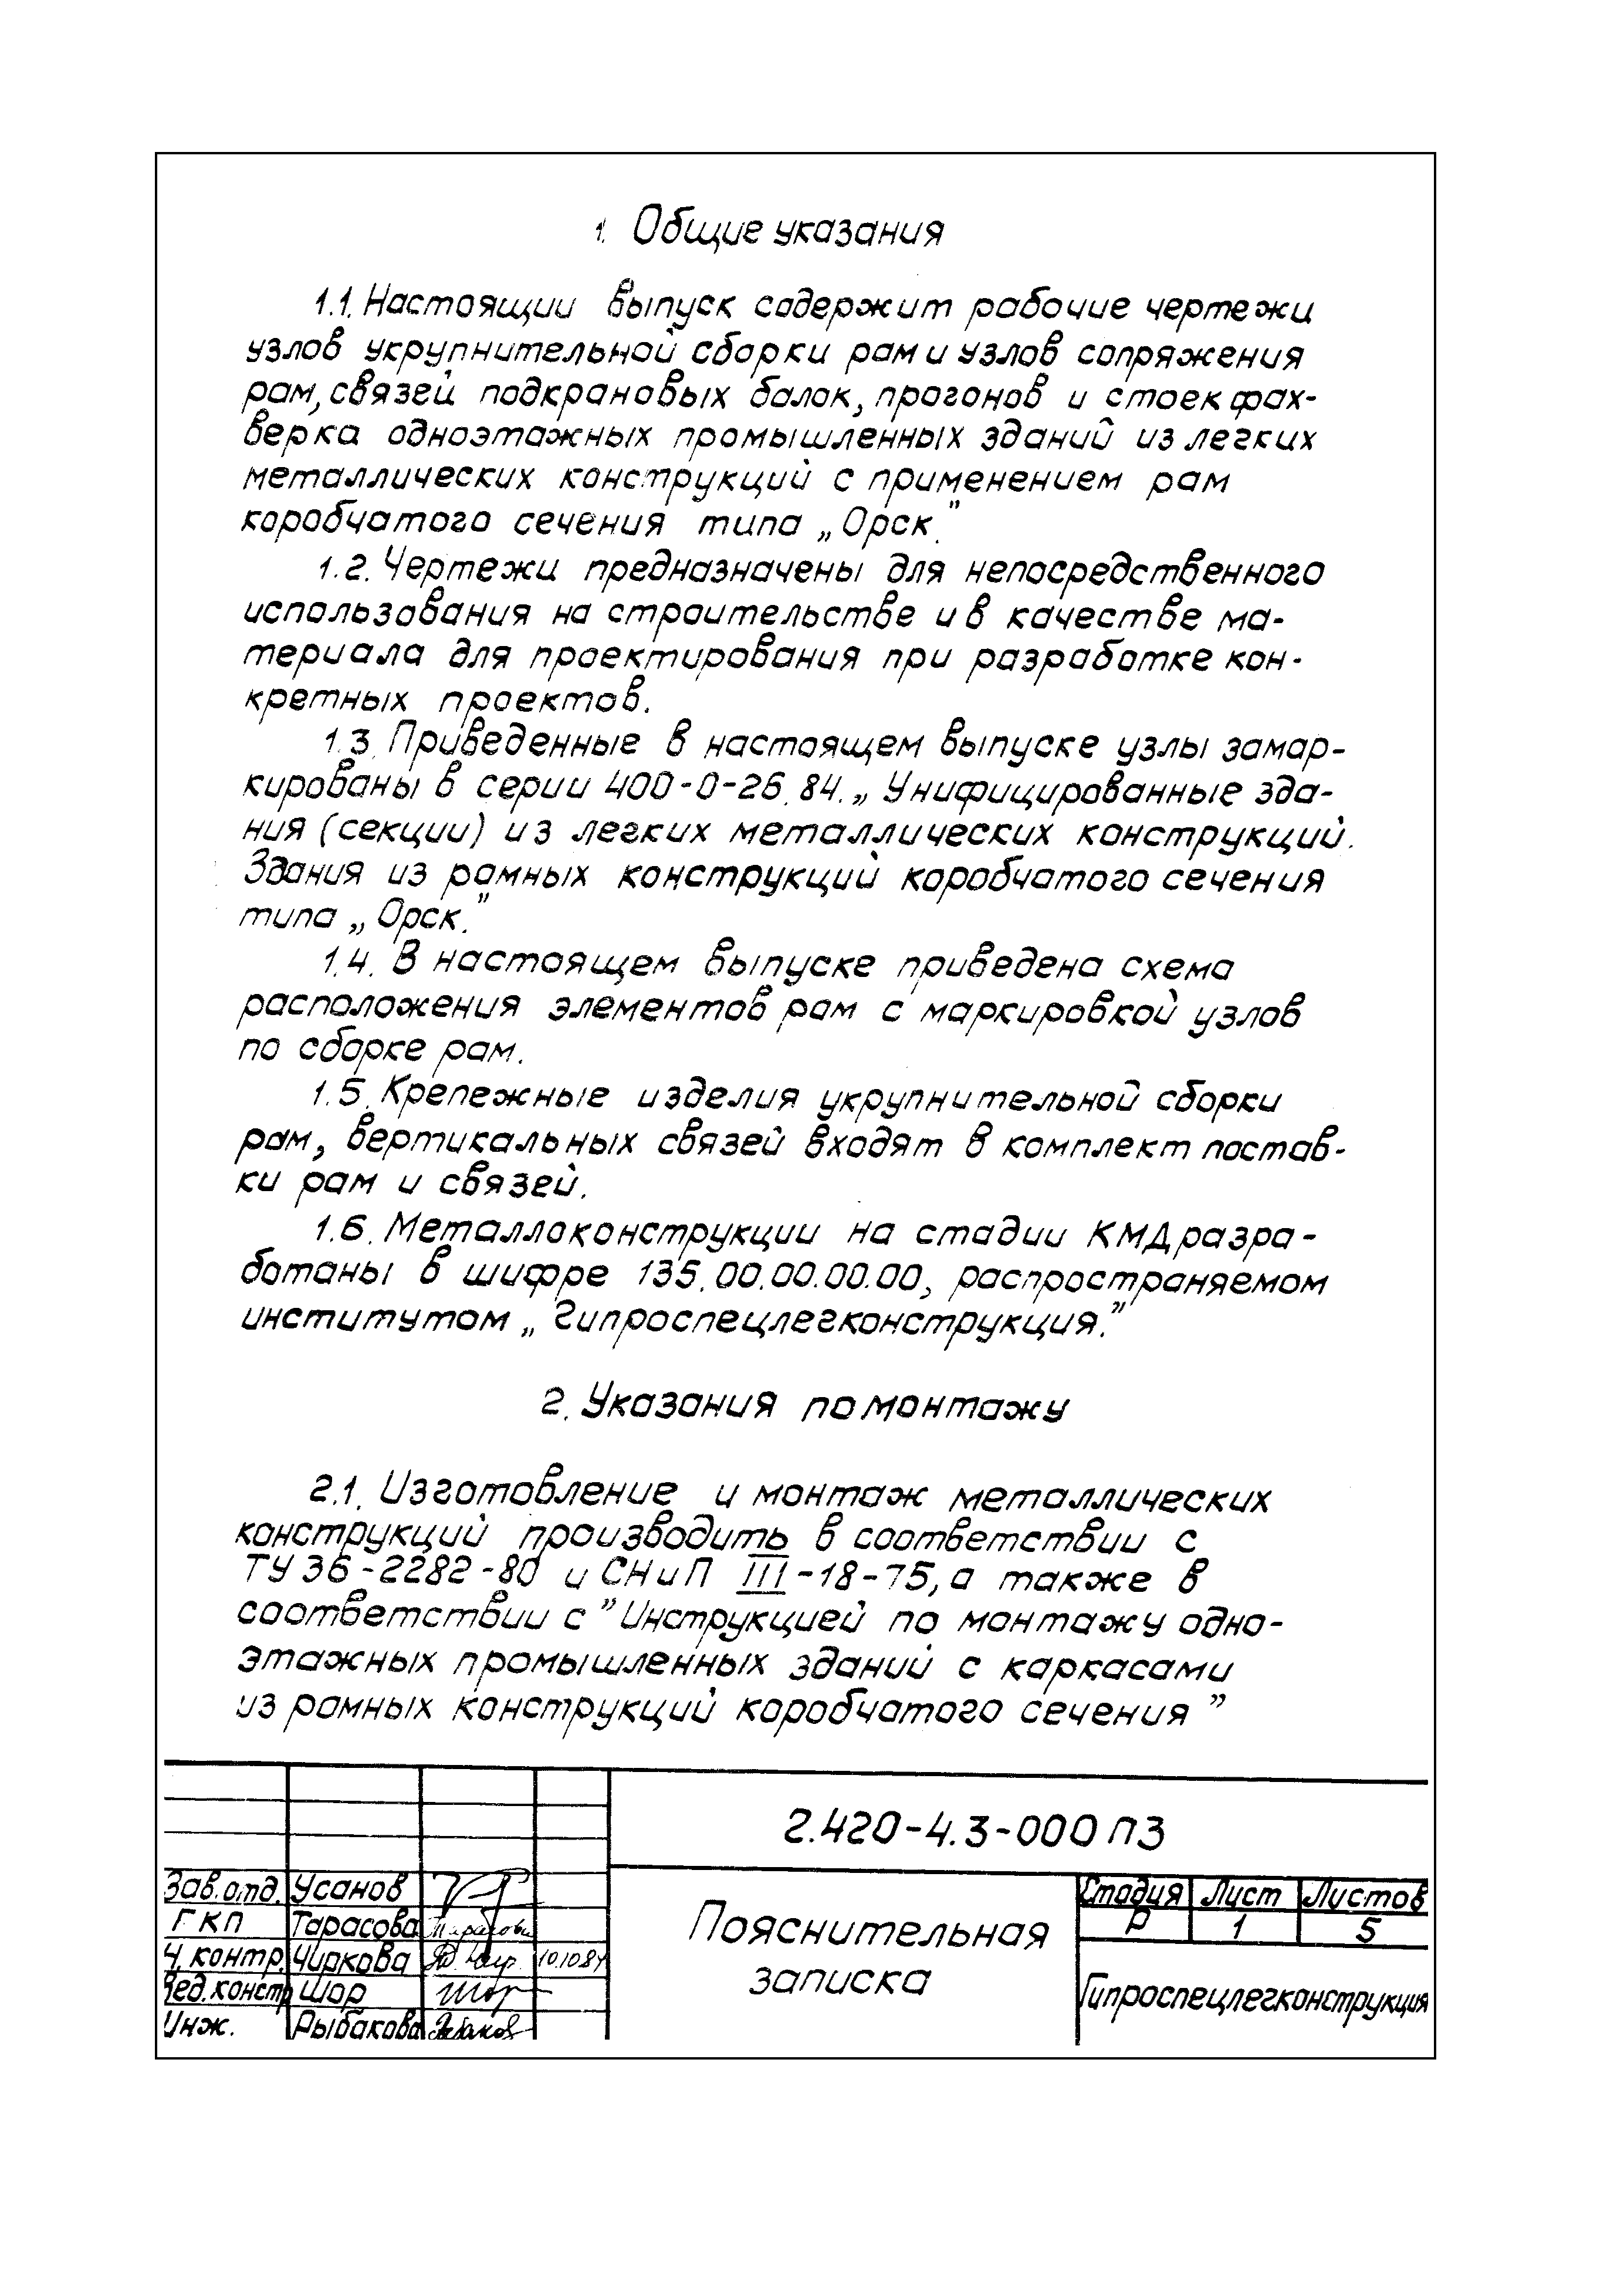 1. Общие указания
1.1. Настоящии выпуск содержит рабочие чертежи
узлов укрупнительной сборки рам и узлов сопряжения
рам, связей подкрановых балок, прогонов и стоек фах-
верка одноэтажных промышленных зданий из легких
металлических конструкций с применением рам
коробчатого сечения типа „Орск."
1.2. Чертежи предназначены для непосредственного
использования на строительстве и в качестве ма-
териала для проектирования при разработке кон-
кретных проектов.
1.3. Приведенные в настоящем выпуске узлы замар-
кированы в серии 400-0-26.84. „Унифицированные зда-
ния (секции) из легких металлических конструкций.
Здания из рамных конструкций коробчатого сечения
типа „Орск."
1.4. В настоящем выпуске приведена схема
расположения элементов рам с маркировкой узлов
по сборке рам.
1.5. Крепежные изделия укрупнительной сборки
рам, вертикальных связей входят в комплект постав-
ки рам и связей.
1.6. Металлоконструкции на стадии КМД разра-
ботаны в шифре 135.00.00.00.00, распространяемом
институтом „Гипроспецлегконструкция."
2. Указания по монтажу
2.1. Изготовление и монтаж металлических
конструкций производить в соответствии с
ТУ 36-2282-80 и СНиП III-18-75, а также в
соответствии с "Инструкцией по монтажу одно-
этажных промышленных зданий с каркасами
из рамных конструкций коробчатого сечения"
2.420-4.3-000 ПЗ
Зав. отд. Усанов
ГКП Тарасова
Ч. контр. Чиркова 10.10.84
Вед. констр Шор Шор
Инж. Рыбакова
Пояснительная
записка
Стадия Лист Листов
Р 1 5
Гипроспецлегконструкция